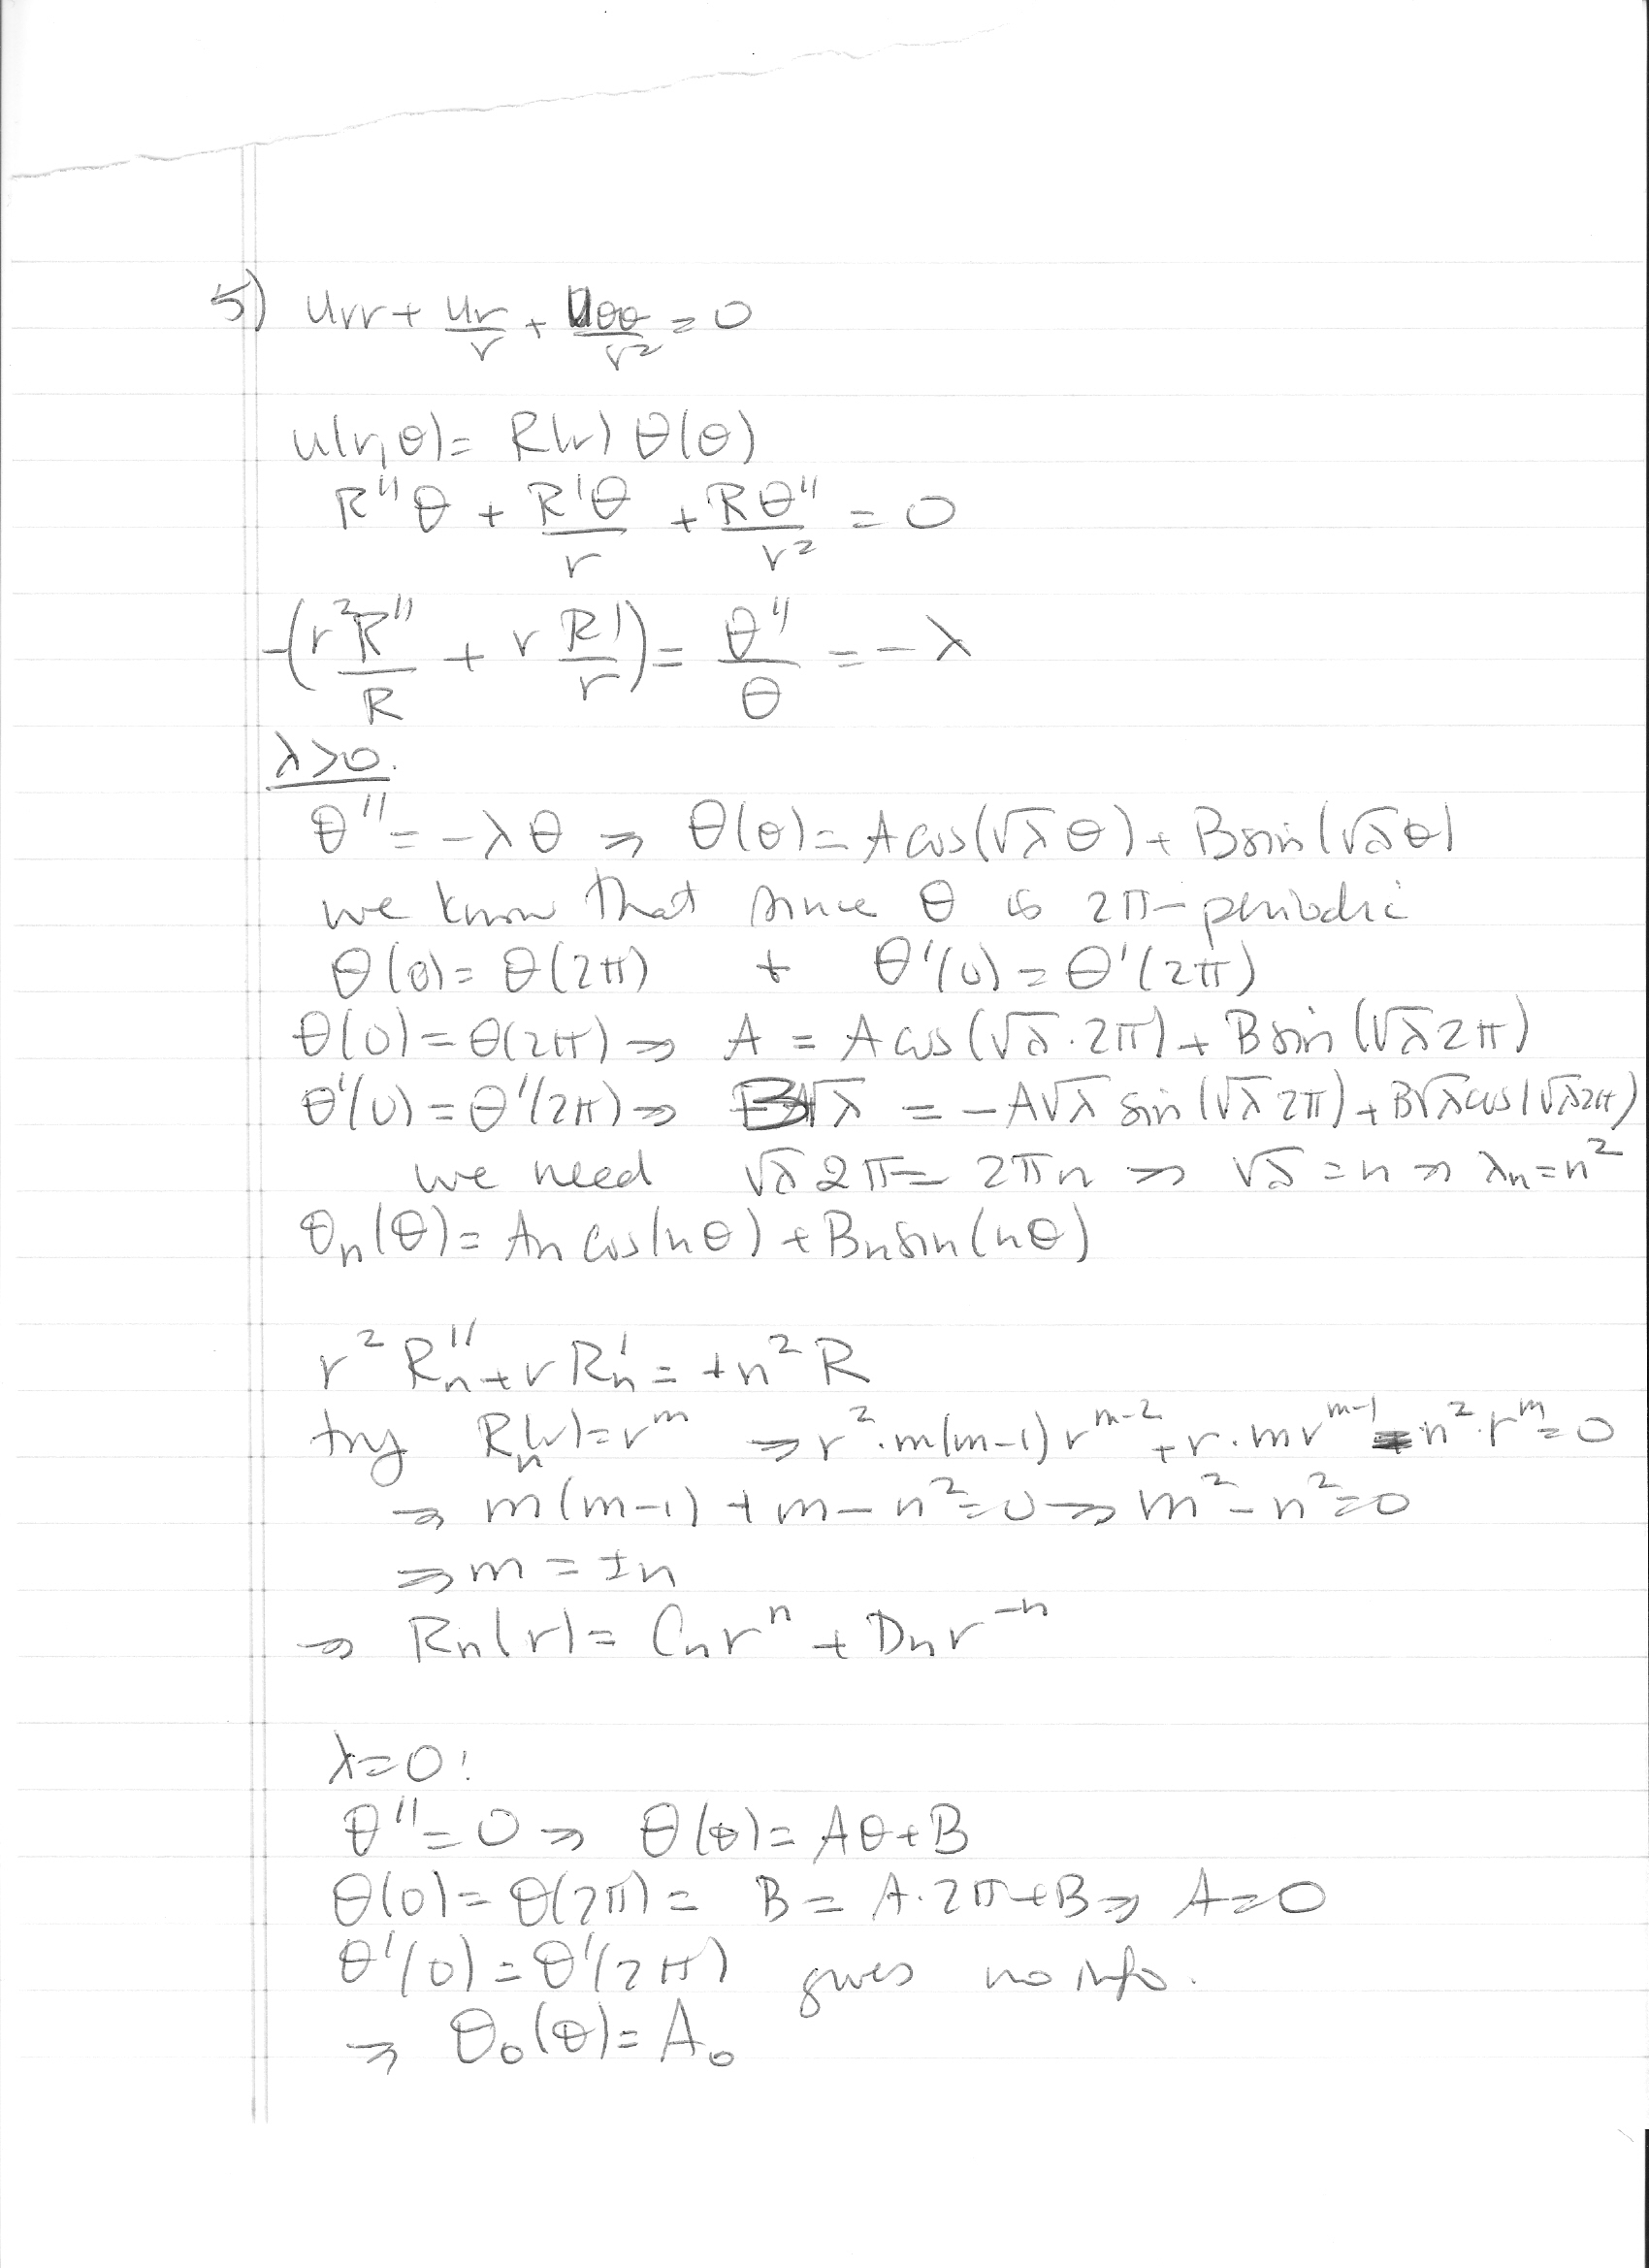 5) u_rr + u_r/r + u_θθ/r² = 0
u(r,θ) = R(r) Θ(θ)
R''Θ + R'Θ/r + RΘ''/r² = 0
-(r²R''/R + r R'/r) = Θ''/Θ = -λ
λ>0.
Θ'' = -λΘ ⇒ Θ(θ) = A cos(√λ θ) + B sin(√λ θ)
we know that since Θ is 2π-periodic
Θ(0) = Θ(2π) + Θ'(0) = Θ'(2π)
Θ(0) = Θ(2π) ⇒ A = A cos(√λ·2π) + B sin(√λ2π)
Θ'(0) = Θ'(2π) ⇒ B√λ = -A√λ sin(√λ2π) + B√λ cos(√λ2π)
we need √λ2π = 2πn ⇒ √λ = n ⇒ λ_n = n²
Θ_n(θ) = A_n cos(nθ) + B_n sin(nθ)
r² R_n'' + r R_n' = +n² R
try R_n(r) = r^m ⇒ r²·m(m-1) r^(m-2) + r·m r^(m-1) - n²·r^m = 0
⇒ m(m-1) + m - n² = 0 ⇒ m² - n² = 0
⇒ m = ±n
⇒ R_n(r) = C_n r^n + D_n r^-n
λ=0:
Θ'' = 0 ⇒ Θ(θ) = Aθ + B
Θ(0) = Θ(2π) = B = A·2π + B ⇒ A = 0
Θ'(0) = Θ'(2π) gives no info.
⇒ Θ_0(θ) = A_0